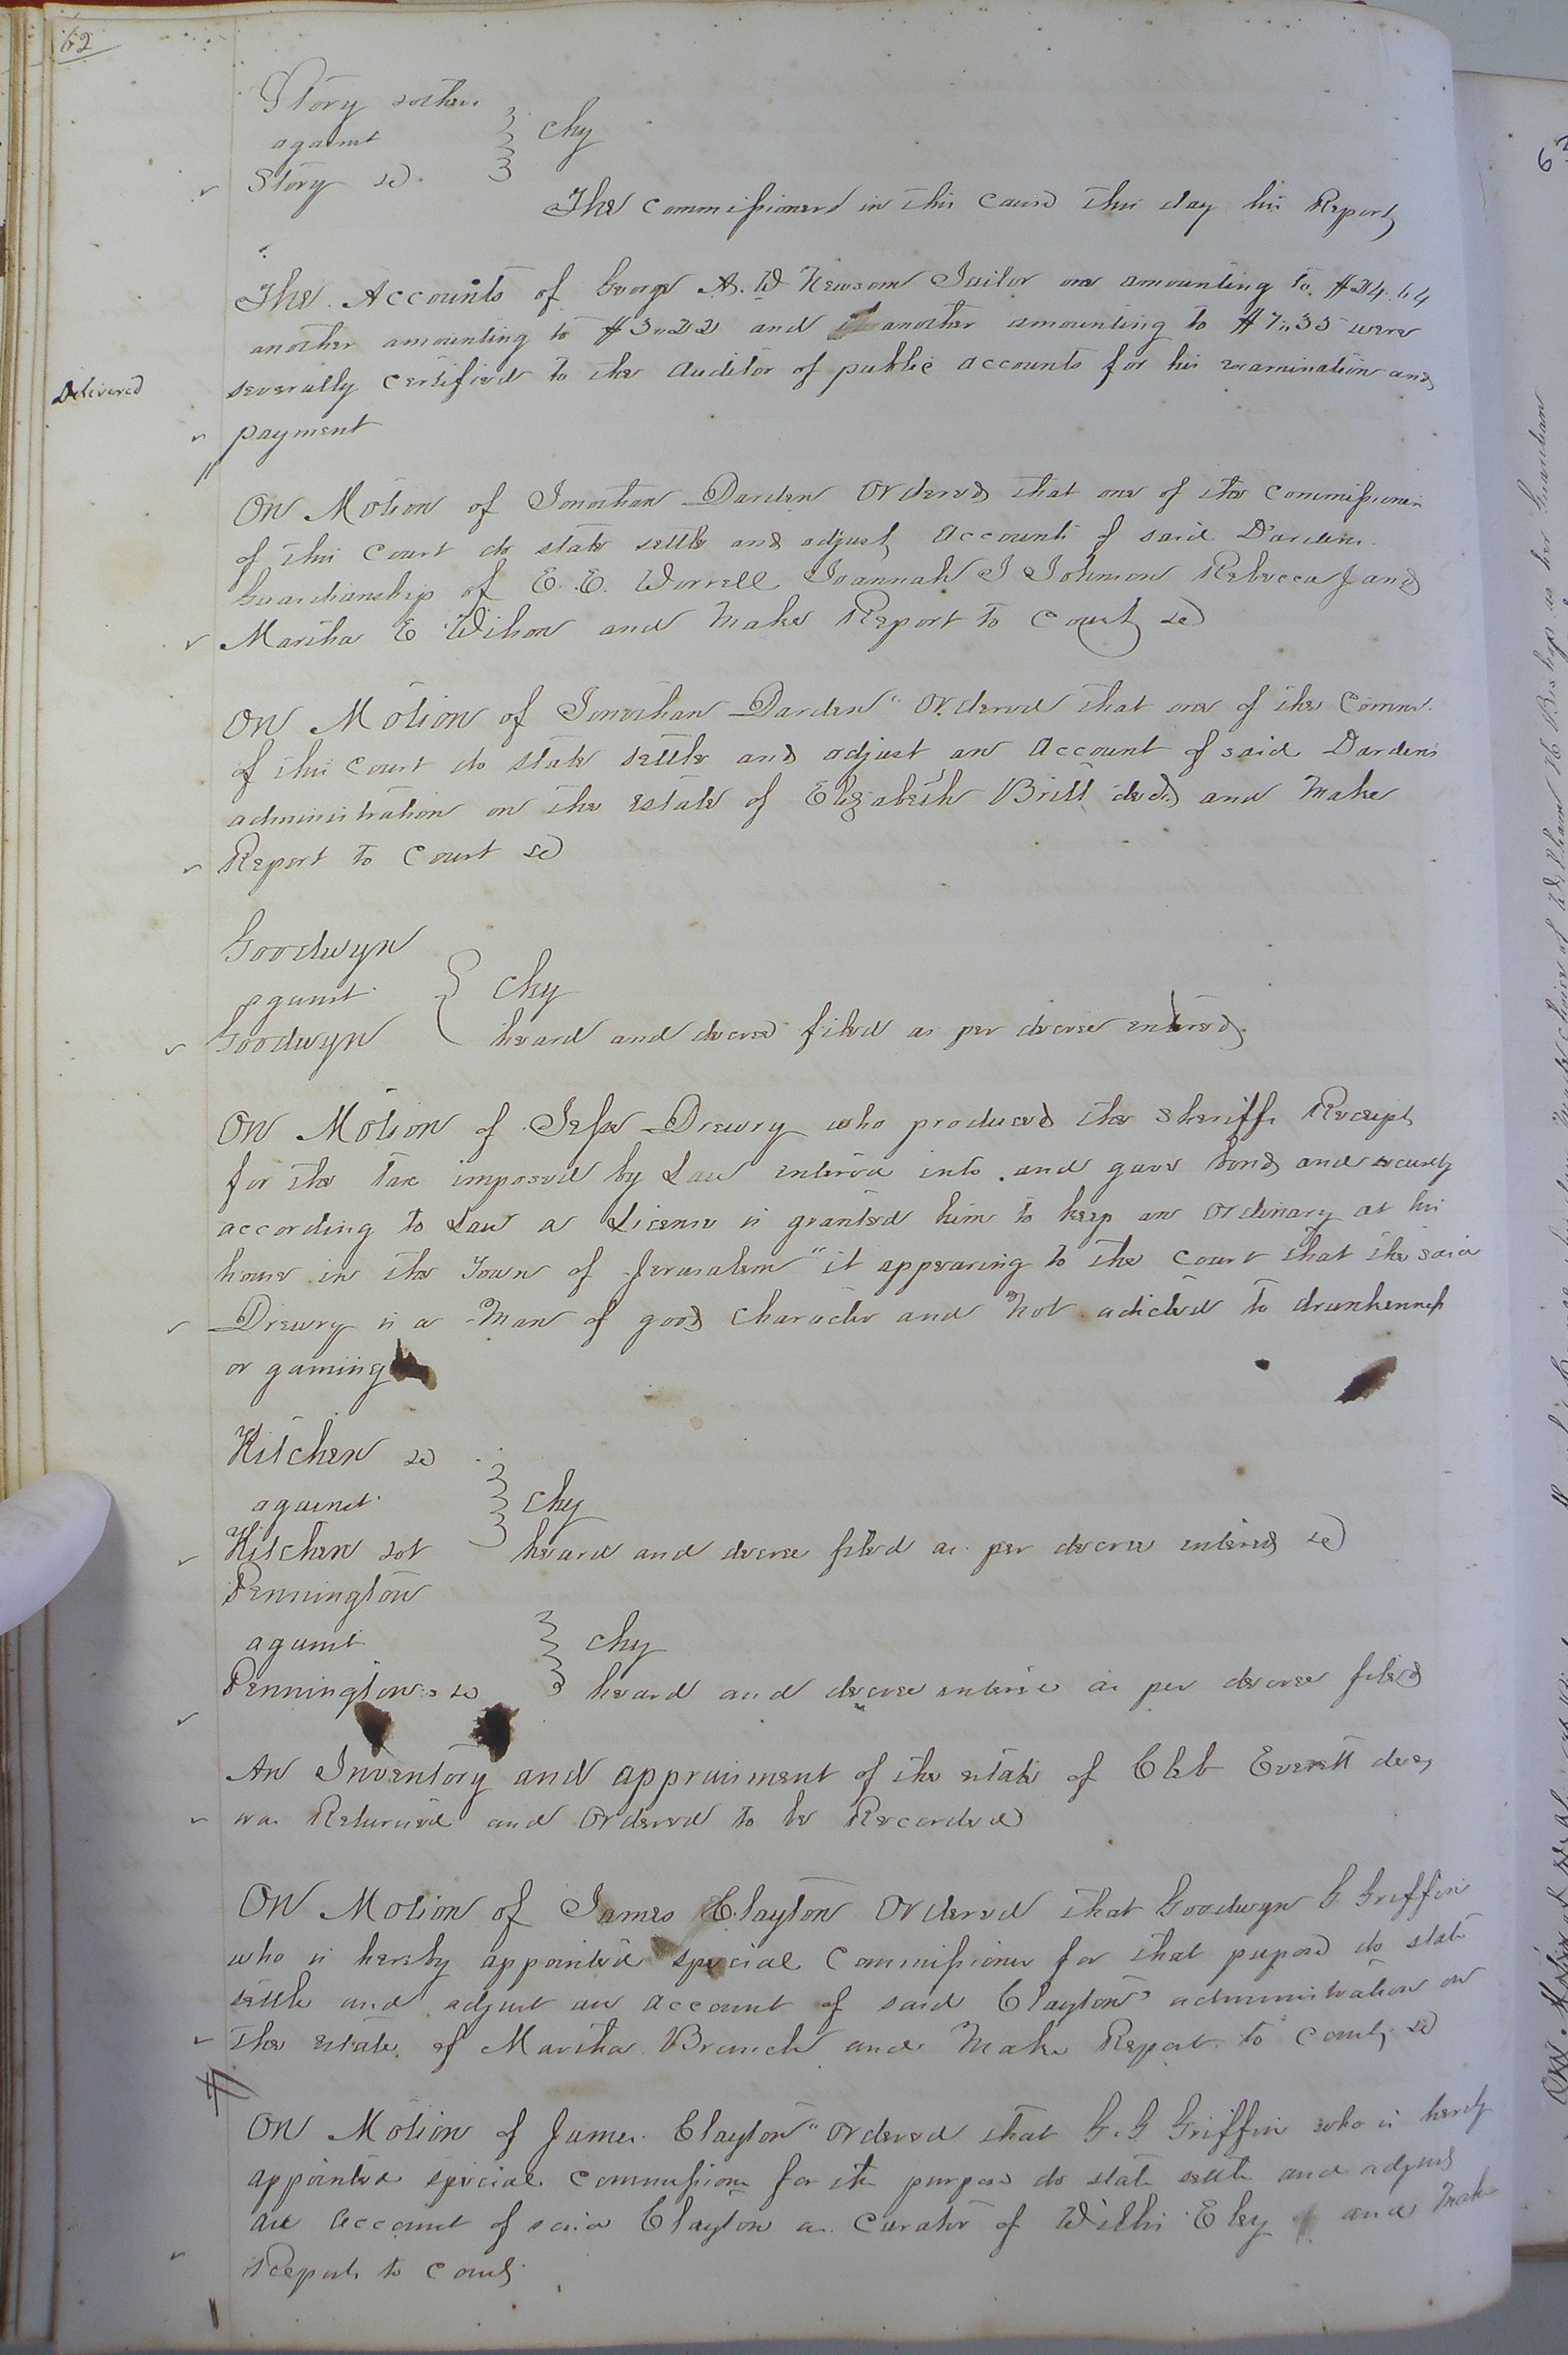 62
Story & others
against } chy
Story &c
The commissioner in this cause this day his Report
The Accounts of George A. W Newsom Jailor one amounting to $24.64
another amounting to $3.22 and another amounting to $7.35 were
Delivered
severally certified to the Auditor of public accounts for his examination and
payment
On Motion of Jonathan Darden Ordered that one of the commissioners
of this Court do state settle and adjust Accounts of said Dardens
Guardianship of E. E. Worrell Joannah J Johnson Rebecca J and
Martha E Wilson and Make Report to Court &c
On Motion of Jonathan Darden Ordered that one of the Commrs.
of this Court do state settle and adjust an Account of said Dardens
administration on the estate of Elizabeth Britt decd. and Make
Report to Court &c
Goodwyn
against } Chy
Goodwyn heard and decree filed as per decree entered
On Motion of Jesse Drewry who produced the Sheriffs Receipt
for the Tax imposed by Law entered into and gave bond and security
according to Law a License is granted him to keep an Ordinary at his
house in the Town of Jerusalem it appearing to the Court that the said
Drewry is a Man of good Character and Not adicted to drunkenness
or gaming
Kitchen &c
against } Chy
Kitchen &ot heard and decree filed as per decree entered &c
Pennington
against } chy
Pennington &c heard and decree entered as per decree filed
An Inventory and appraisment of the estate of Everett decd
was Returned and Ordered to be Recorded
On Motion of James Clayton Ordered that Goodwyn G Griffin
who is hereby appointed special Commissioner for that purpose do state
settle and adjust an account of said Clayton's administration on
the estate of Martha Branch and Make Report to Court &c
On Motion of James Clayton Ordered that G. G Griffin who is hereby
appointed special commissioner for the purpose do state settle and adjust
an account of said Clayton as Curator of Willis Eley and Make
Report to Court